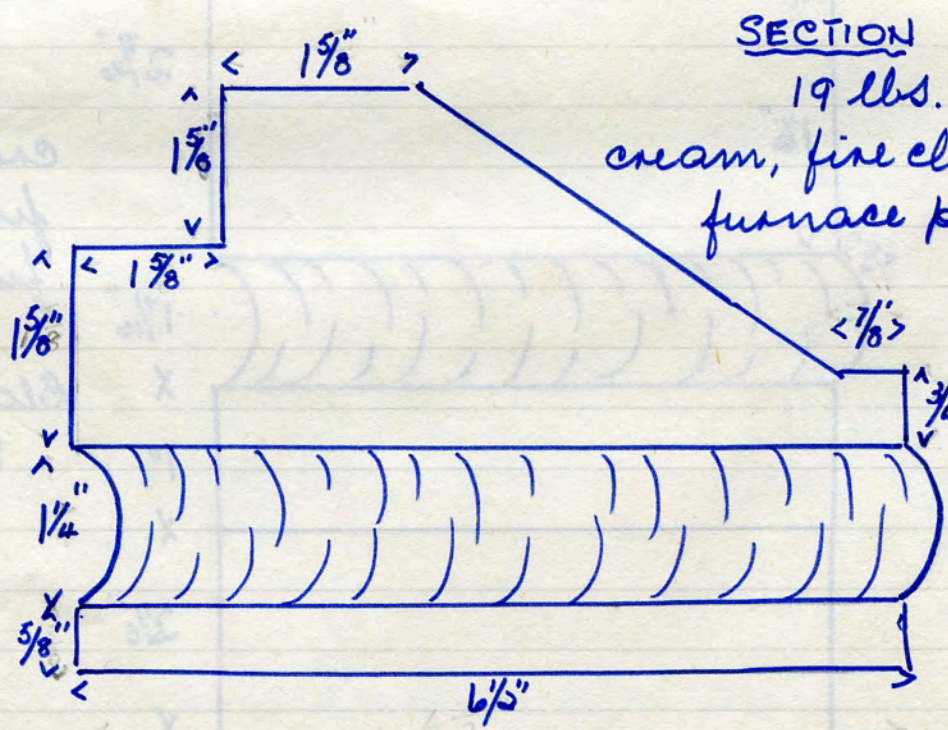 SECTION
19 lbs.
cream, fire
furnace
1 5/8"
1 5/8"
1 5/8"
1 5/8"
7/8"
1 1/4"
5/8"
6 1/2"